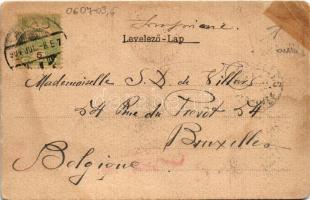 0607-03,6
Imprimé
Levelező-Lap
Mademoiselle S. D. de Villers
54 Rue du Prévot 54
Bruxelles
Belgique